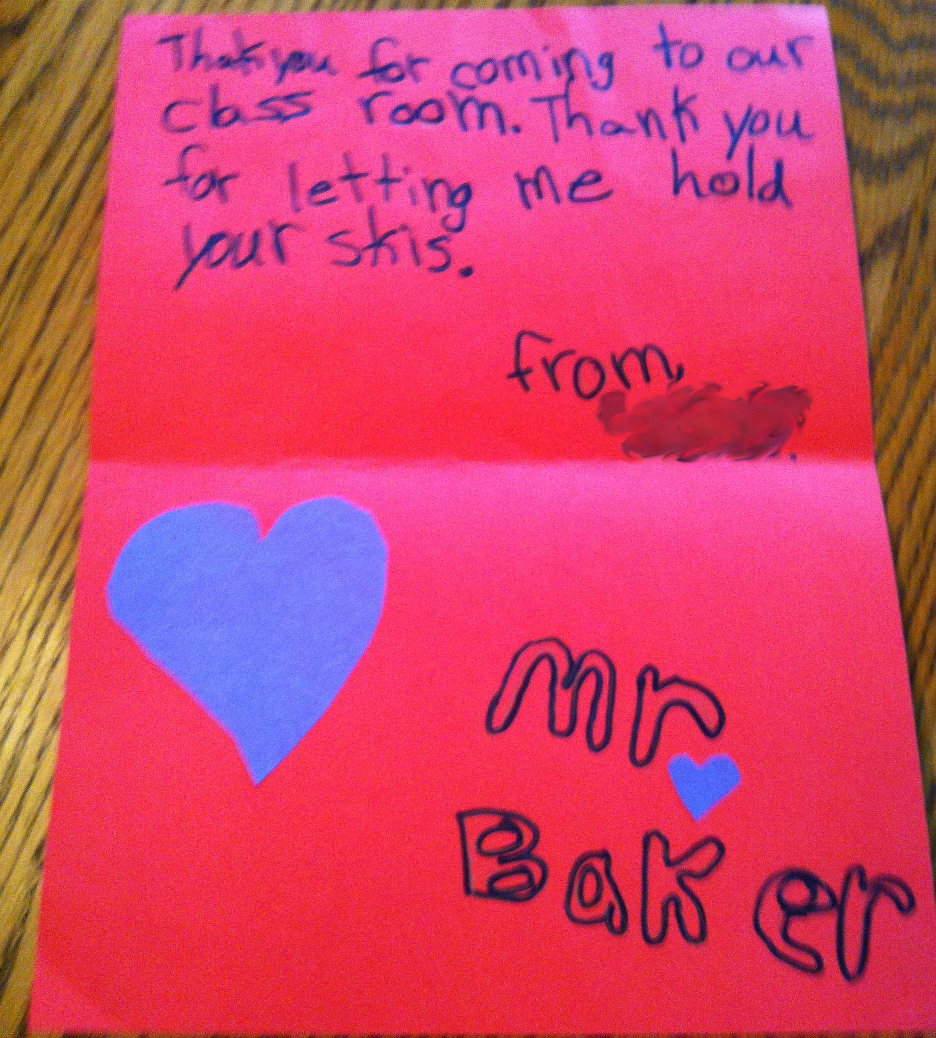 Thank you for coming to our
class room. Thank you
for letting me hold
your skis.
from,
Mr
Baker